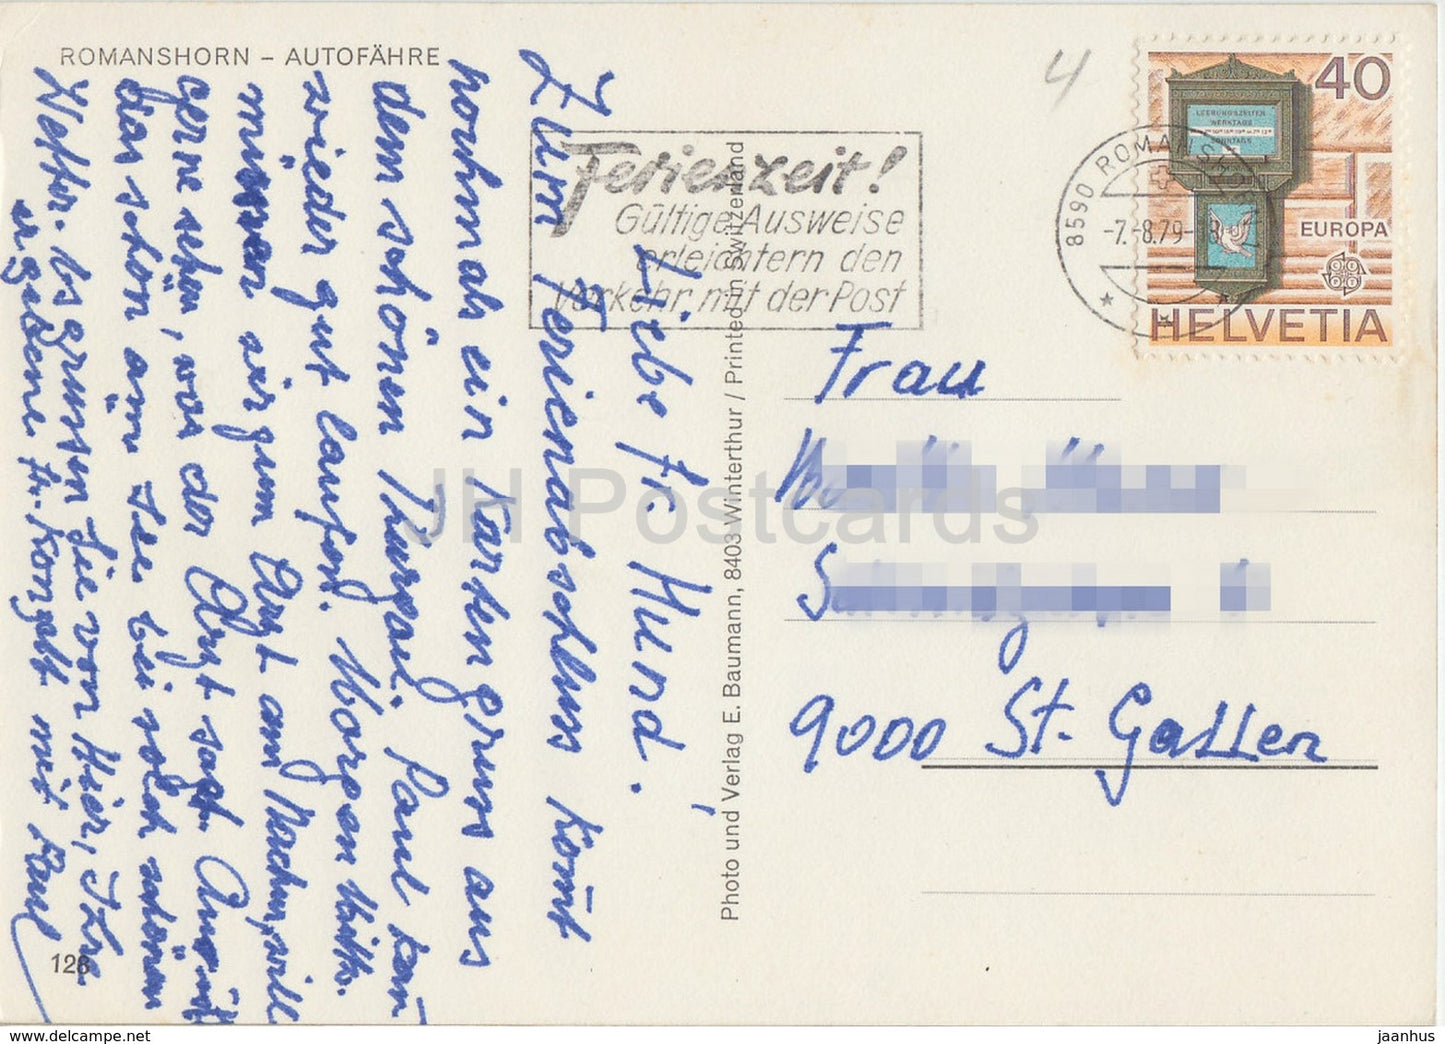 ROMANSHORN – AUTOFÄHRE
4
40
LEERUNGSZEITEN
WERKTAGS
SONNTAGS
EUROPA
HELVETIA
8590 ROMANSHORN
-7.-8.79-
Ferienzeit!
Gültige Ausweise
erleichtern den
Verkehr mit der Post
Liebe Fr. Hund!
Zum Ferienabschluss kommt
nochmals ein Kartengruss aus
dem schönen Thurgau. Paul kan
wieder gut laufen. Morgen Mitt.
müssen wir zum Arzt am Nachm, will
gerne sehen, was der Arzt sagt.
das schön am See bei solch schönem
Wetter. Es grüssen Sie von Hier, Ihre
Fr. Kongolt mit Paul
Photo und Verlag E. Baumann, 8403 Winterthur / Printed in Switzerland
Frau
9000 St. Gallen
128
JH Postcards
jh-postcards.myshopify.com
jaanhus